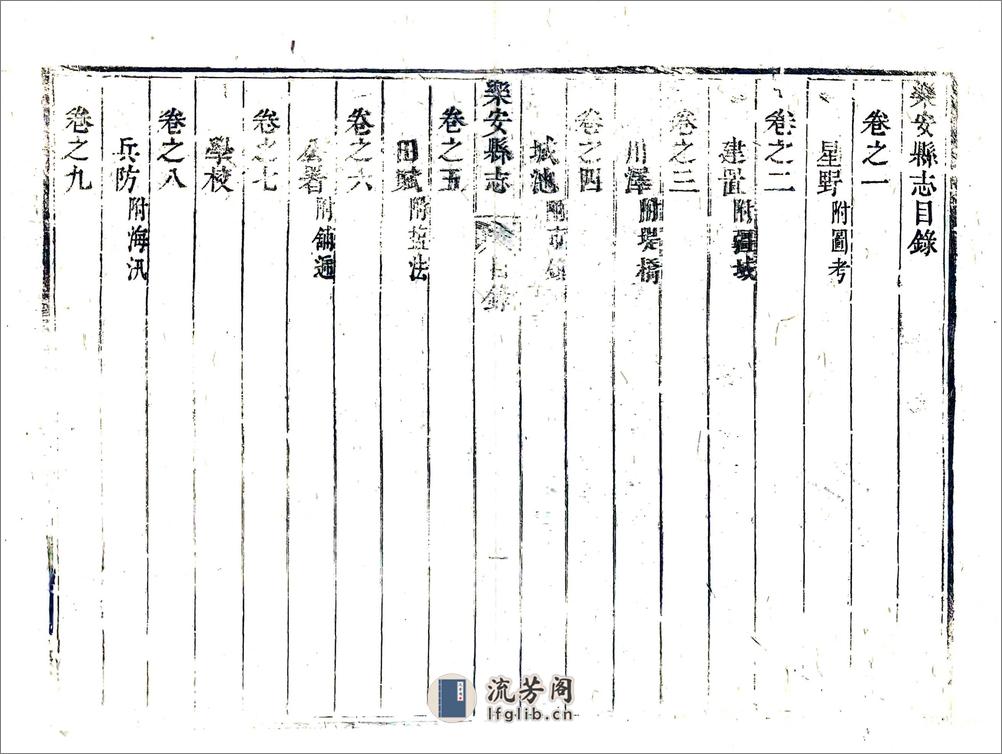 樂安縣志目錄
卷之一
星野附圖考
卷之二
建置附疆域
卷之三
川澤附堤橋
卷之四
城池附市鎮
樂安縣志
目錄
一
卷之五
田賦附盐法
卷之六
公署附鋪遞
卷之七
學校
卷之八
兵防附海汛
卷之九
流芳阁
lfglib.cn